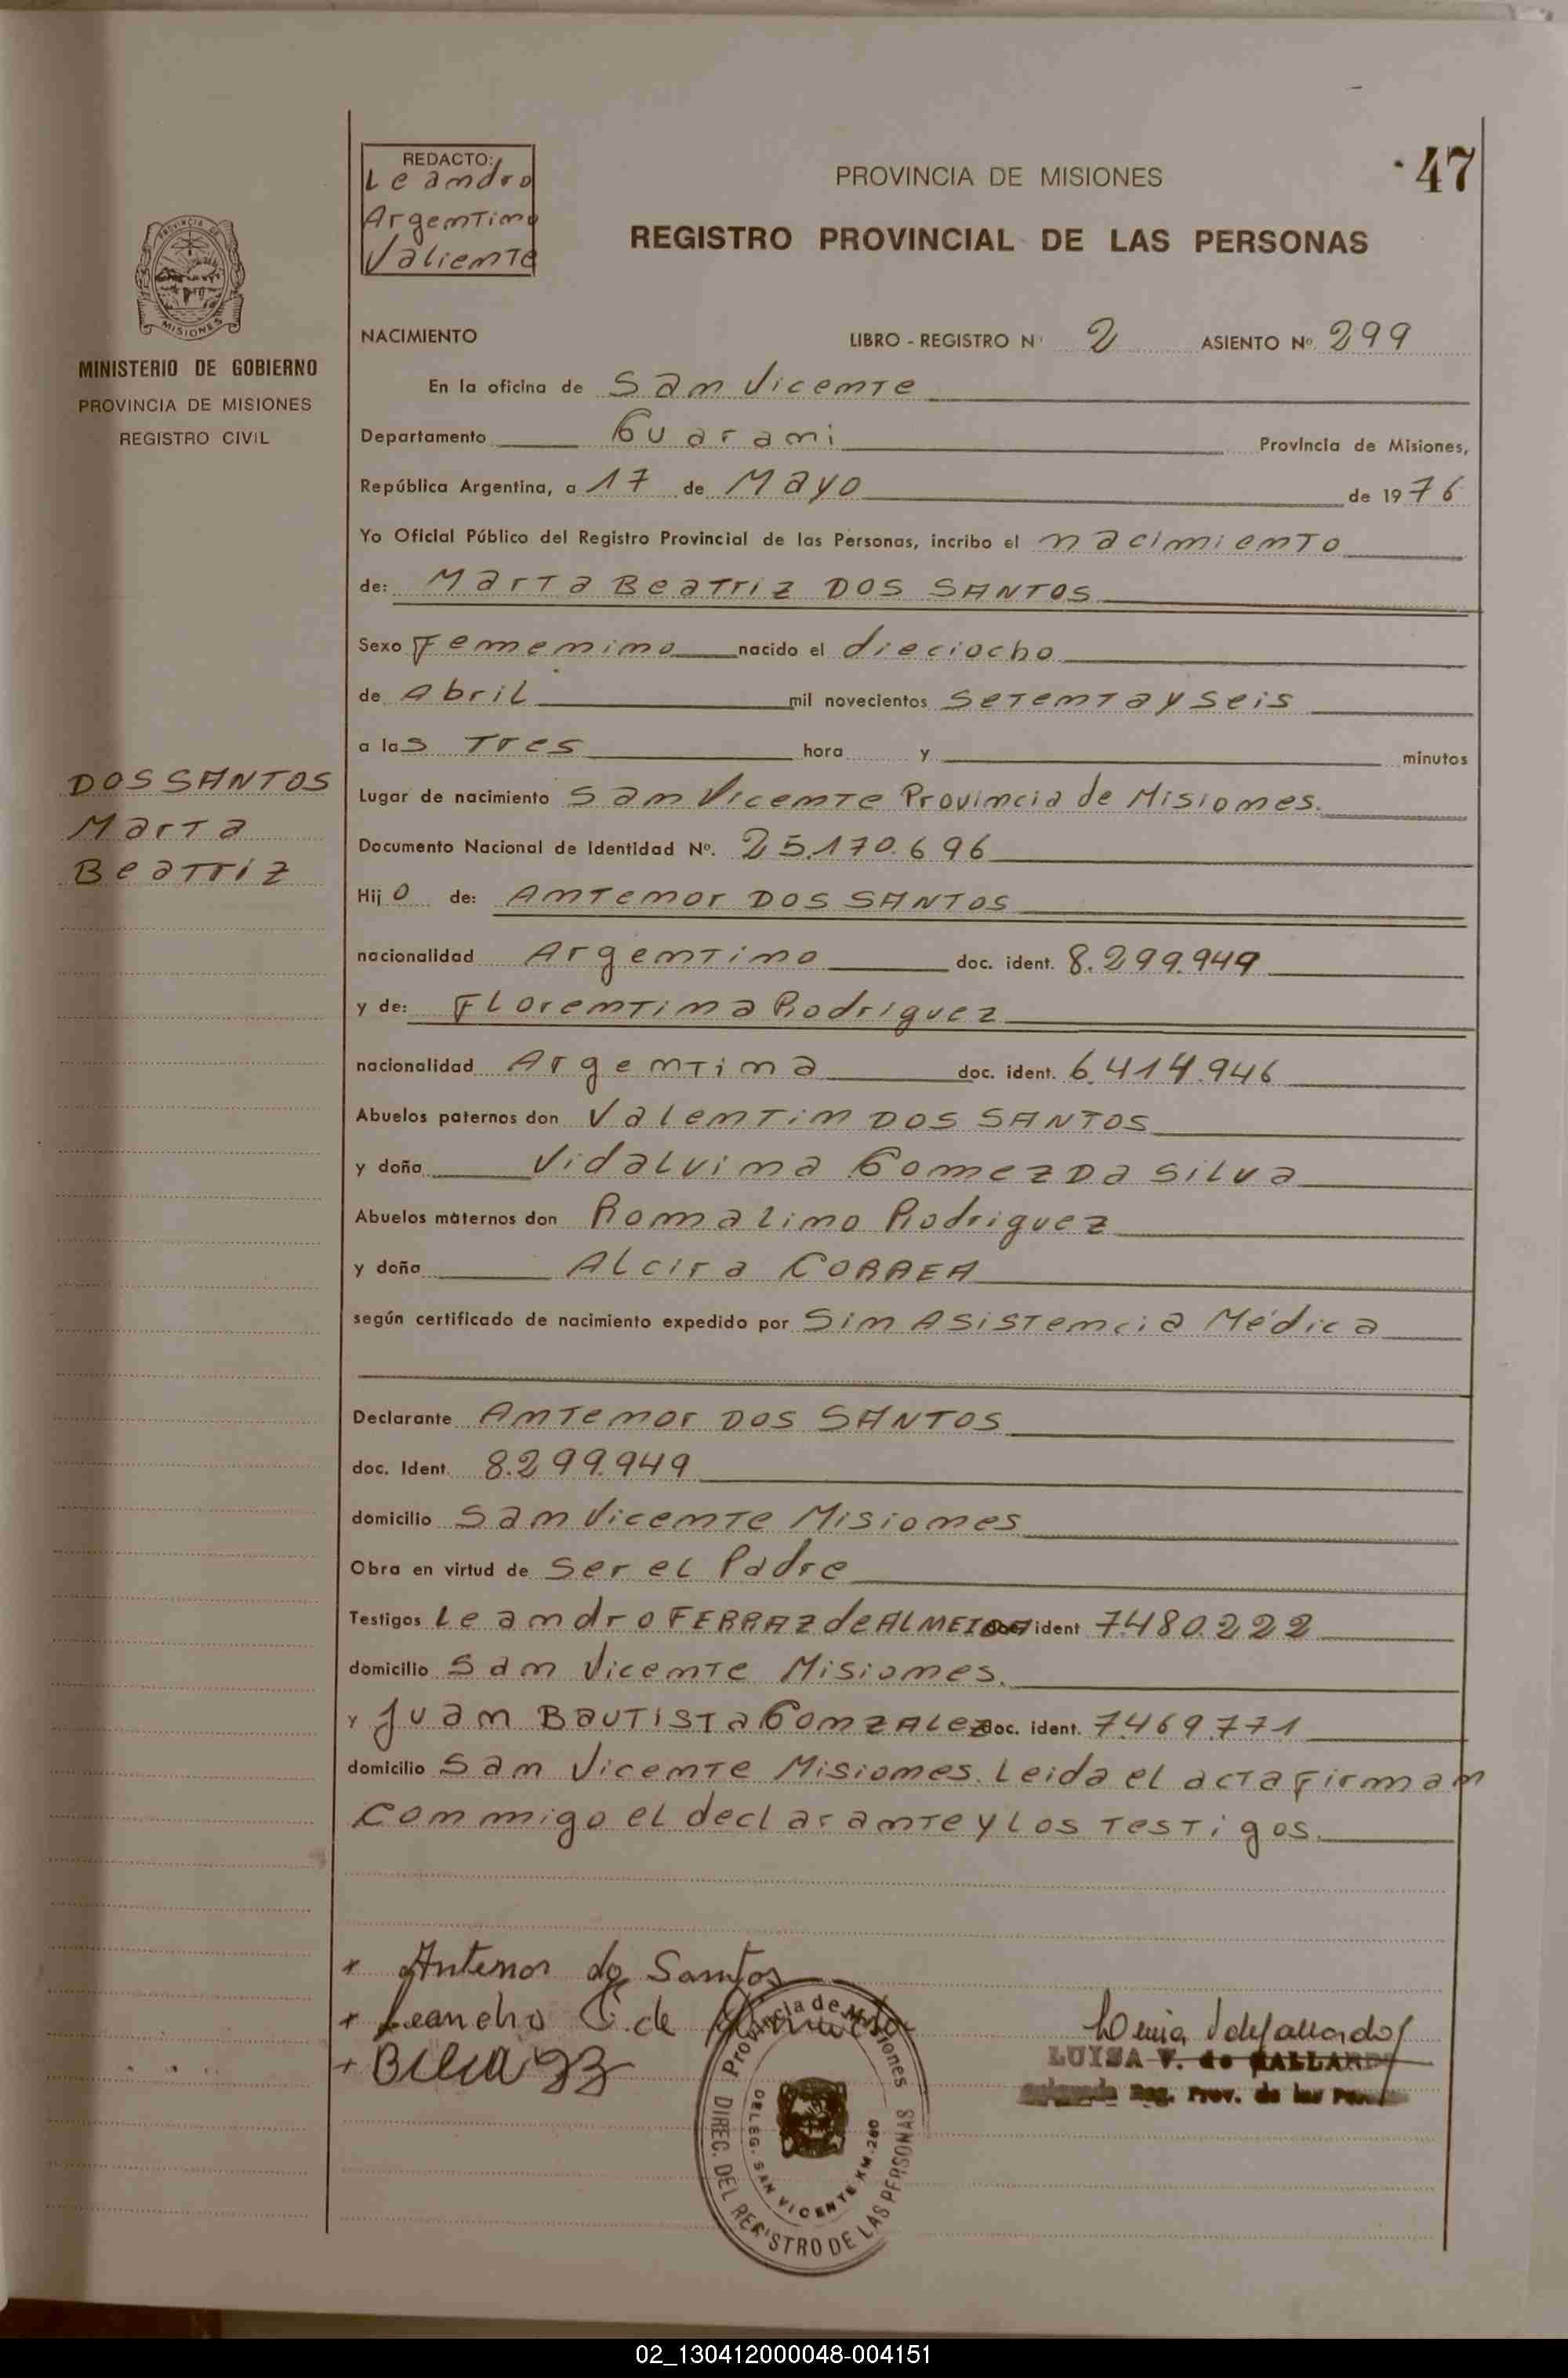 REDACTO:
Leandro
Argentino
Valiente
PROVINCIA DE MISIONES
47
REGISTRO PROVINCIAL DE LAS PERSONAS
PROVINCIA DE
MISIONES
MINISTERIO DE GOBIERNO
PROVINCIA DE MISIONES
REGISTRO CIVIL
NACIMIENTO LIBRO - REGISTRO Nº 2 ASIENTO Nº. 299
En la oficina de San Vicente
Departamento Guarani Provincia de Misiones,
República Argentina, a 17 de Mayo de 1976
Yo Oficial Público del Registro Provincial de las Personas, incribo el nacimiento
de: Marta Beatriz DOS SANTOS
Sexo Femenino nacido el dieciocho
de Abril mil novecientos setenta y seis
a las Tres hora y minutos
DOS SANTOS
Marta
Beatriz
Lugar de nacimiento San Vicente Provincia de Misiones.
Documento Nacional de Identidad Nº. 25.170.696
Hijo de: Antenor DOS SANTOS
nacionalidad Argentino doc. ident. 8.299.949
y de: Florentina Rodriguez
nacionalidad Argentina doc. ident. 6.414.946
Abuelos paternos don Valentin DOS SANTOS
y doña Vidalvina Gomez Da Silva
Abuelos maternos don Romalino Rodriguez
y doña Alcira CORREA
según certificado de nacimiento expedido por Sin Asistencia Médica
Declarante Antenor DOS SANTOS
doc. Ident. 8.299.949
domicilio San Vicente Misiones
Obra en virtud de ser el Padre
Testigos Leandro FERRAZ de ALMEIDA doc. ident 7.480.222
domicilio San Vicente Misiones.
y Juan Bautista Gonzalez doc. ident. 7.469.771
domicilio San Vicente Misiones. Leida el acta firman
conmigo el declarante y los testigos.
+ Antenor do Santos
+ Leandro de
LUISA V. de GALLARDO
Reg. Prov. de las
Provincia de Misiones
DIREC. DEL REGISTRO DE LAS PERSONAS
DELEG. SAN VICENTE KM. 260
02_130412000048-004151